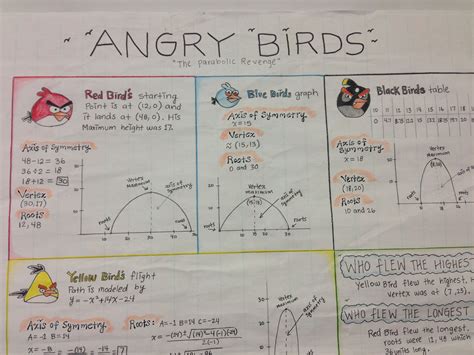 ~ ~ ANGRY BIRDS ~ ~
"The parabolic Revenge"
Red Bird's starting
Point is at (12,0) and
it lands at (48,0). His
Maximum height was 17.
Axis of Symmetry
48-12 = 36
36÷2 = 18
18+12 = 30
Vertex
(30,17)
Roots
12, 48
Vertex
Maximum
axis of
symmetry
roots
roots
Blue Birds graph
Axis of Symmetry
x=15
Vertex
≈ (15,13)
Roots
0 and 30
Vertex
Maximum
(15,13)
axis of
Symmetry
roots
roots
Black Birds table
Axis of Symmetry
x = 18
Vertex
(18,20)
Roots
10 and 26
Vertex
Maximum
(18,20)
roots
Yellow Bird's flight
Path is modeled by
y=-x²+14x-24
Axis of Symmetry
A=-1 B=14
Roots:
A=-1 B=14 C=-24
Vertex
Maximum
axis of
WHO FLEW THE HIGHEST
Yellow Bird flew the highest,
vertex was at (7,25).
WHO FLEW THE LONGEST
Red Bird flew the longest.